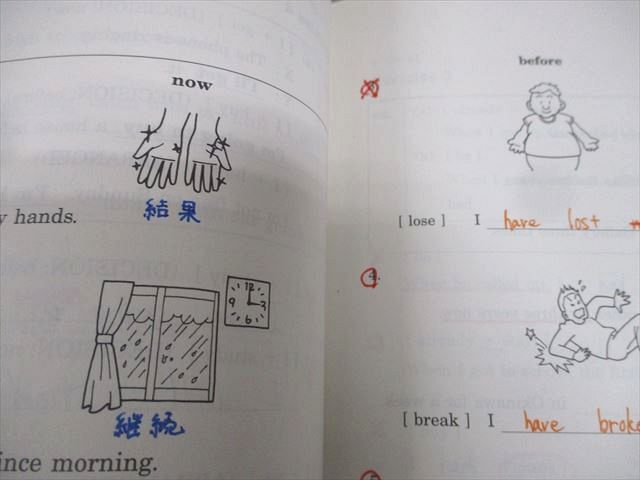 now
結果
y hands.
12
9 3
6
継続
ince morning.
before
[ lose ] I have lost
4.
[ break ] I have broke
5